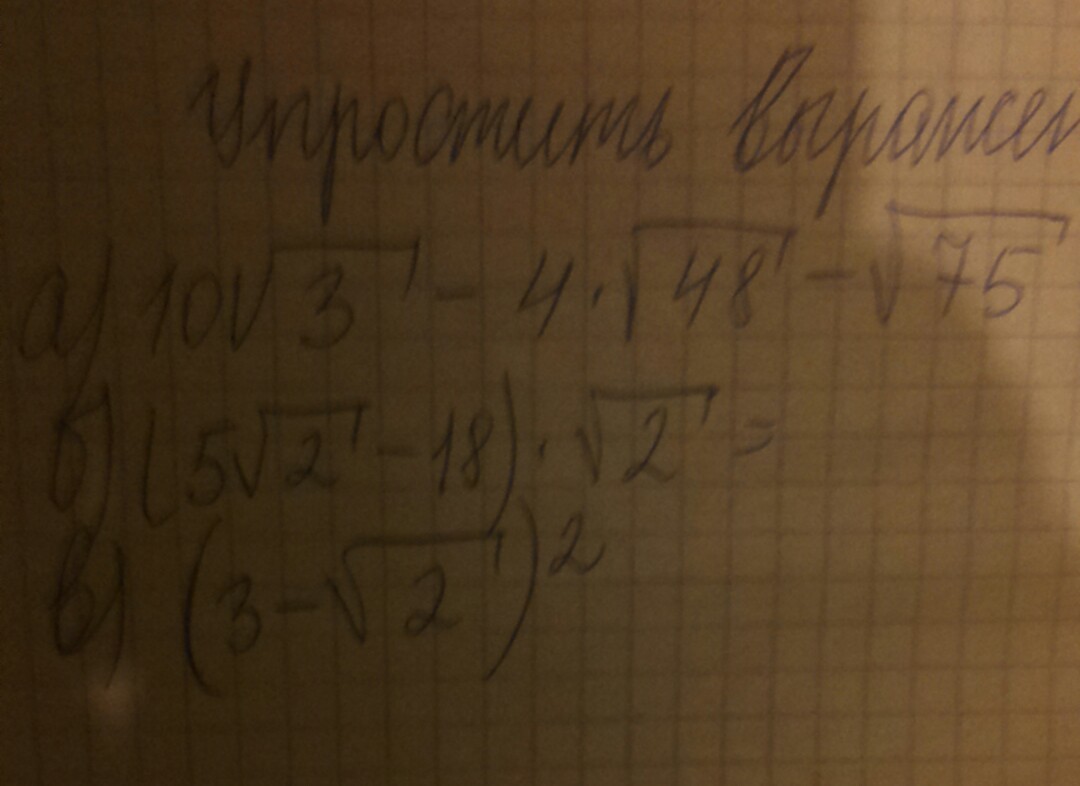 Упростить выражен
а) 10√3 - 4·√48 - √75
б) (5√2 - 18)·√2 =
в) (3 - √2)²